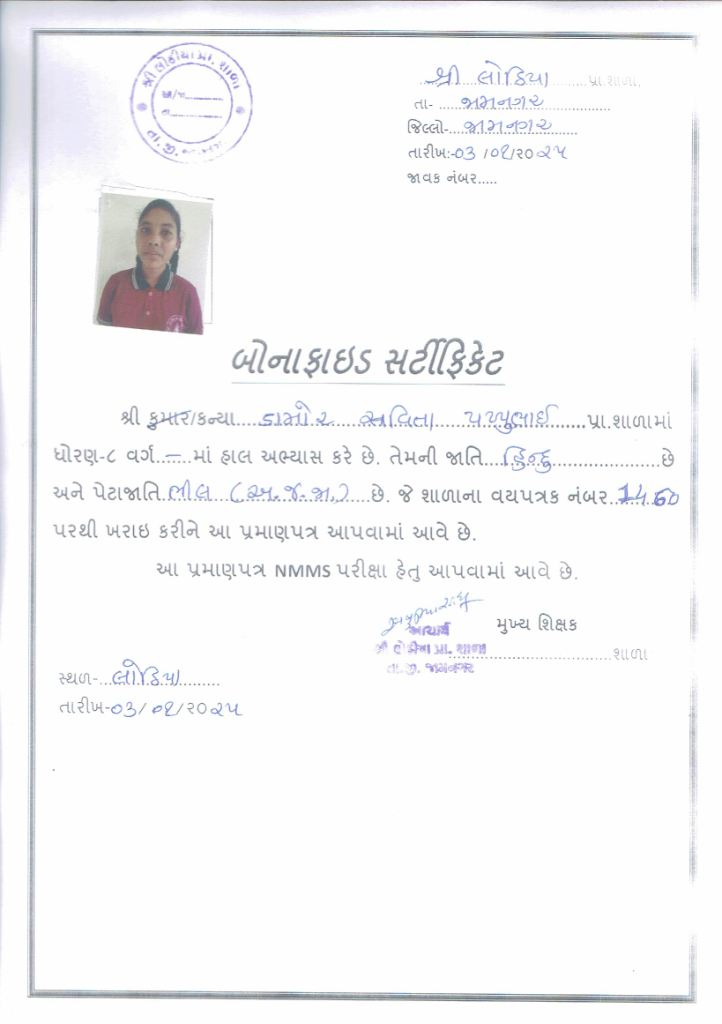 શ્રી લોઠીયા પ્રા. શાળા
તા.જી. જામનગર
શ્રી લોઠિયા પ્રા.શાળા,
તા- જામનગર
જિલ્લો- જામનગર
તારીખ:-03 /01/૨૦૨૫
જાવક નંબર.....
બોનાફાઇડ સર્ટીફિકેટ
શ્રી કુમાર/કન્યા ડામોર સવિતા પપ્પુભાઈ પ્રા.શાળામાં
ધોરણ-૮ વર્ગ.—.માં હાલ અભ્યાસ કરે છે. તેમની જાતિ હિન્દુ છે
અને પેટાજાતિ ભીલ (અ.જ.જા.) છે. જે શાળાના વયપત્રક નંબર 1460
પરથી ખરાઇ કરીને આ પ્રમાણપત્ર આપવામાં આવે છે.
આ પ્રમાણપત્ર NMMS પરીક્ષા હેતુ આપવામાં આવે છે.
આચાર્ય મુખ્ય શિક્ષક
શ્રી લોઠીયા પ્રા. શાળા શાળા
તા.જી. જામનગર
સ્થળ- લોઠિયા
તારીખ-03/01/૨૦૨૫